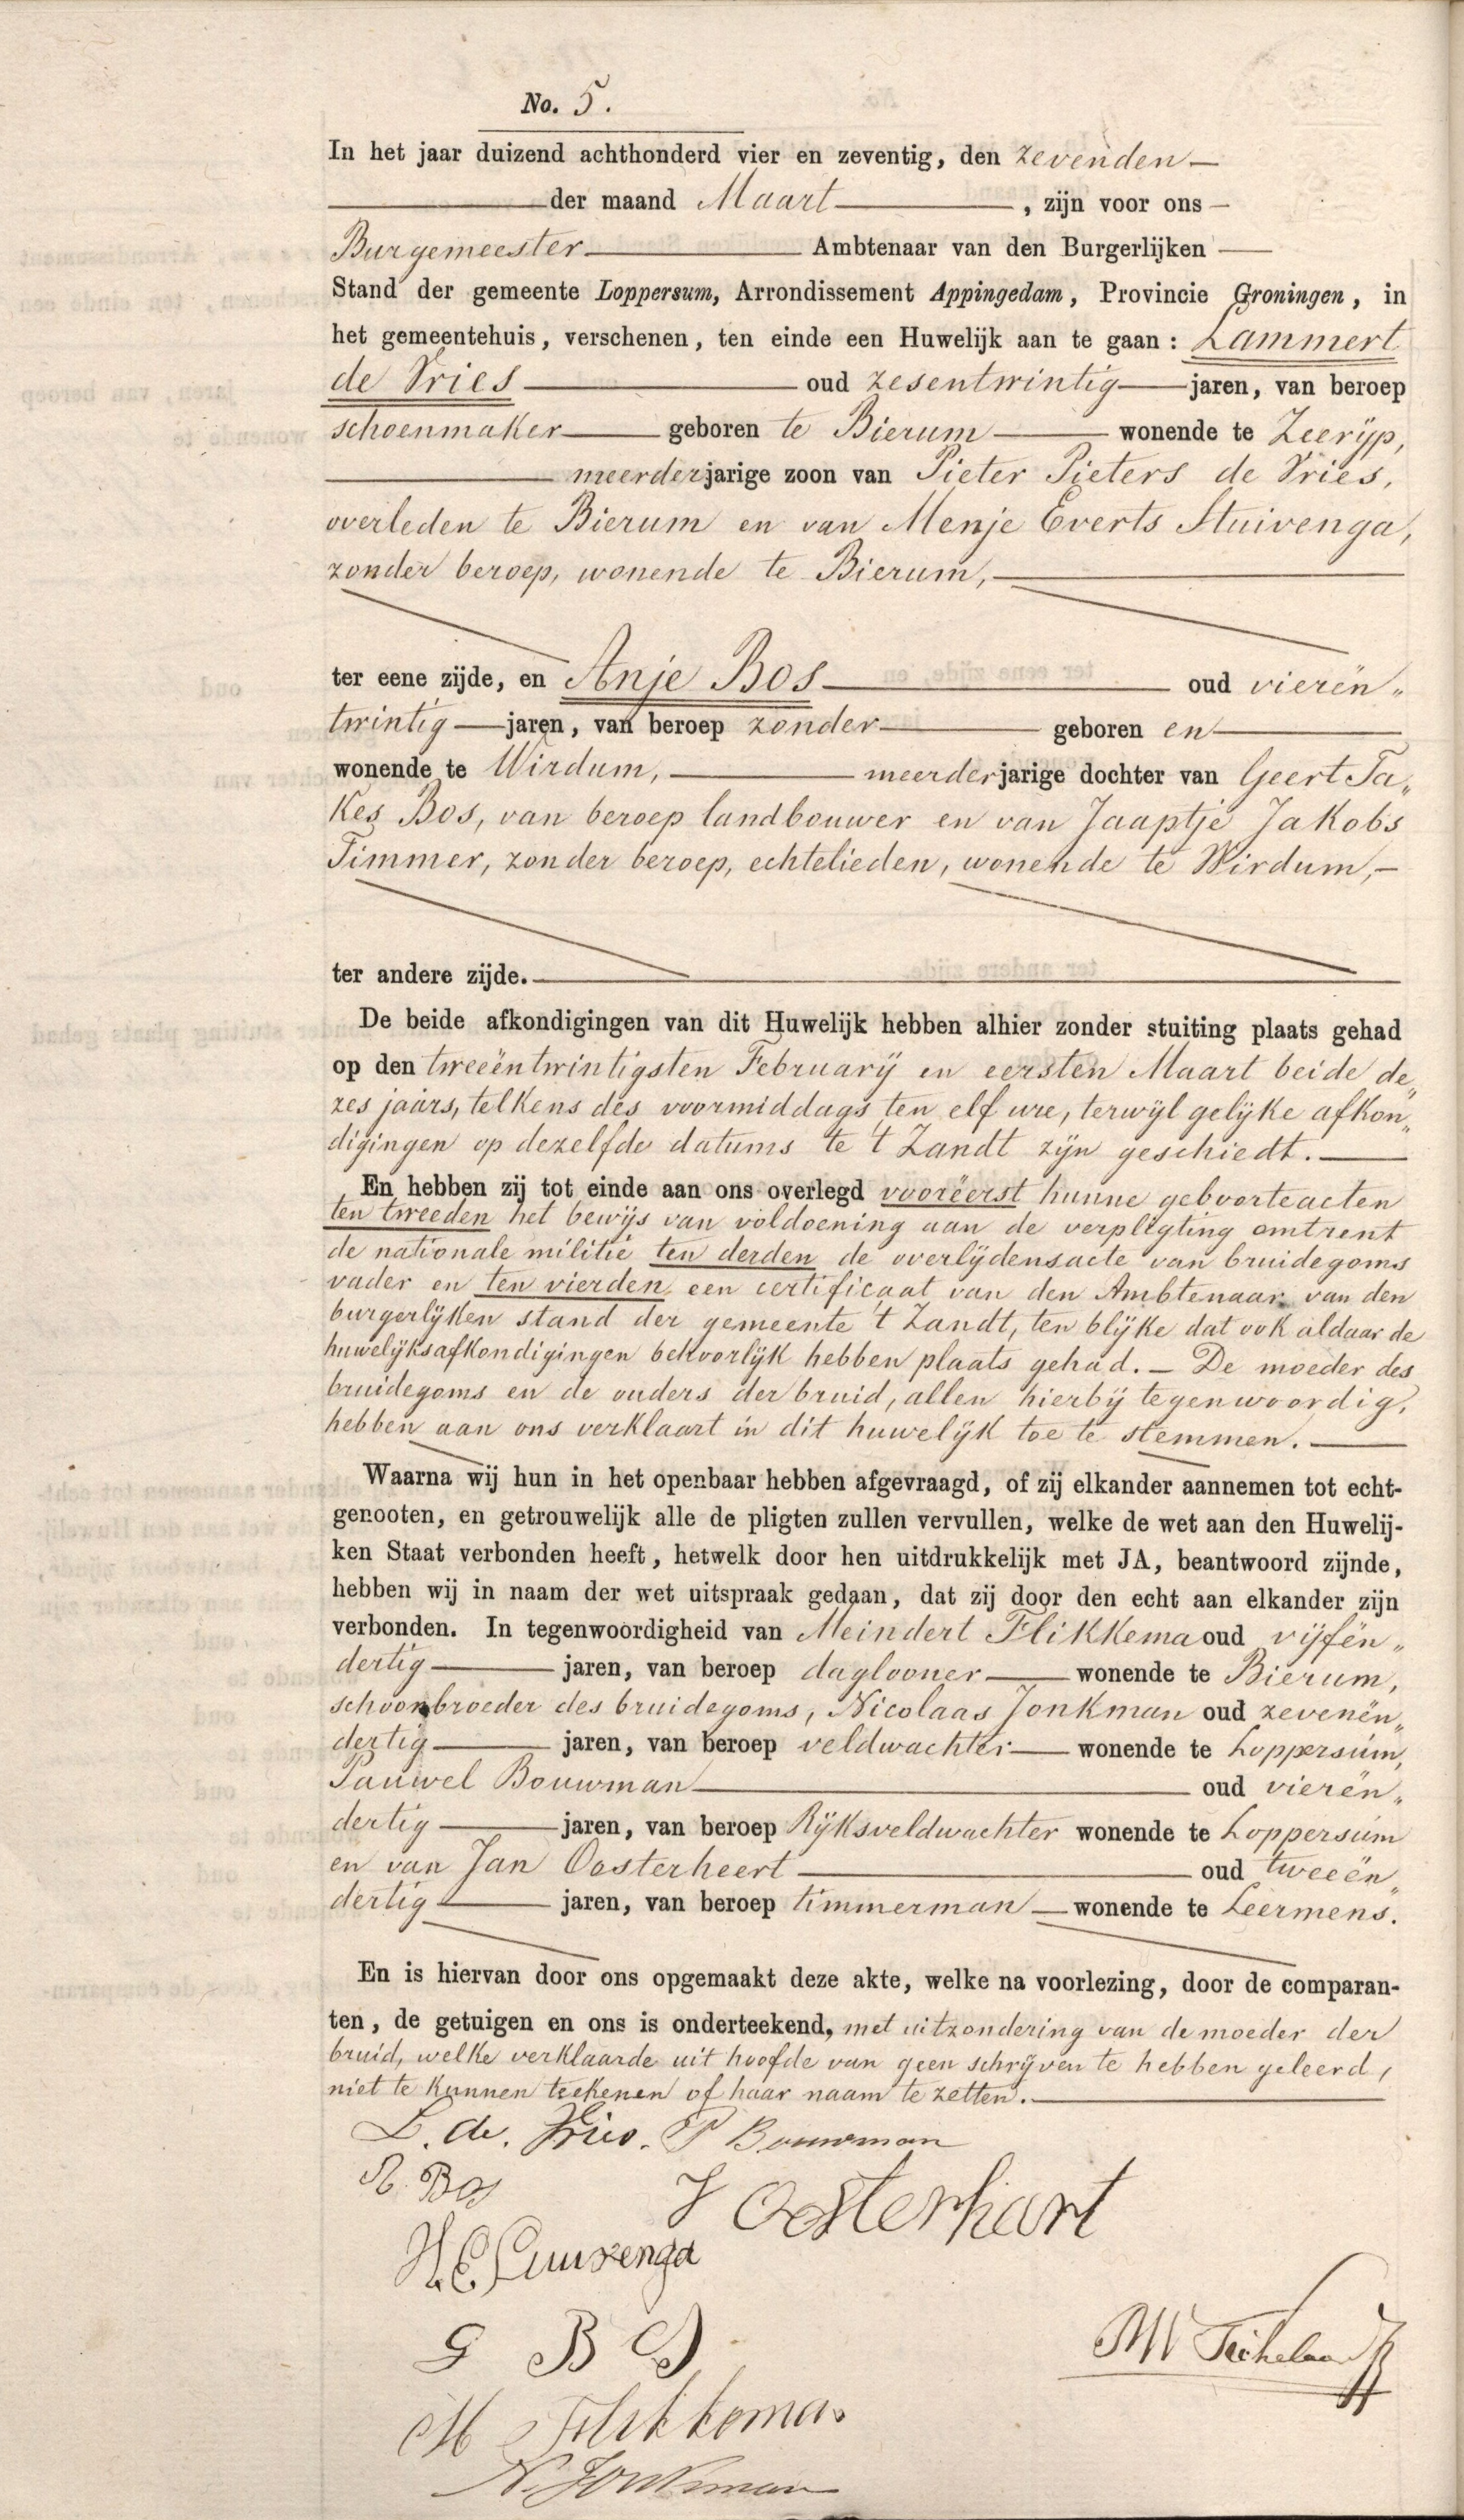 No. 5.
In het jaar duizend achthonderd vier en zeventig, den zevenden
der maand Maart, zijn voor ons
Burgemeester Ambtenaar van den Burgerlijken
Stand der gemeente Loppersum, Arrondissement Appingedam, Provincie Groningen, in
het gemeentehuis, verschenen, ten einde een Huwelijk aan te gaan: Lammert
de Vries oud zesentwintig jaren, van beroep
schoenmaker geboren te Bierum wonende te Zeerijp,
meerderjarige zoon van Pieter Pieters de Vries,
overleden te Bierum en van Menje Everts Stuivenga,
zonder beroep, wonende te Bierum,
ter eene zijde, en Anje Bos oud vierën„
twintig jaren, van beroep zonder geboren en
wonende te Wirdum, meerderjarige dochter van Geert Ta„
kes Bos, van beroep landbouwer en van Jaaptje Jakobs
Timmer, zonder beroep, echtelieden, wonende te Wirdum,
ter andere zijde.
De beide afkondigingen van dit Huwelijk hebben alhier zonder stuiting plaats gehad
op den tweeëntwintigsten Februarij en eersten Maart beide de„
zes jaars, telkens des voormiddags ten elf ure, terwijl gelijke afkon„
digingen op dezelfde datums te 't Zandt zijn geschiedt.
En hebben zij tot einde aan ons overlegd vooréerst hunne geboorteacten
ten tweeden het bewijs van voldoening aan de verpligting omtrent
de nationale militie ten derden de overlijdensacte van bruidegoms
vader en ten vierden een certificaat van den Ambtenaar van den
burgerlijken stand der gemeente 't Zandt, ten blijke dat ook aldaar de
huwelijksafkondigingen behoorlijk hebben plaats gehad. — De moeder des
bruidegoms en de ouders der bruid, allen hierbij tegenwoordig,
hebben aan ons verklaart in dit huwelijk toe te stemmen.
Waarna wij hun in het openbaar hebben afgevraagd, of zij elkander aannemen tot echt-
genooten, en getrouwelijk alle de pligten zullen vervullen, welke de wet aan den Huwelij-
ken Staat verbonden heeft, hetwelk door hen uitdrukkelijk met JA, beantwoord zijnde,
hebben wij in naam der wet uitspraak gedaan, dat zij door den echt aan elkander zijn
verbonden. In tegenwoordigheid van Meindert Flikkema oud vijfën„
dertig jaren, van beroep daglooner wonende te Bierum,
schoonbroeder des bruidegoms, Nicolaas Jonkman oud zevenën„
dertig jaren, van beroep veldwachter wonende te Loppersum,
Pauwel Bouwman oud vierën„
dertig jaren, van beroep Rijksveldwachter wonende te Loppersum
en van Jan Oosterheert oud tweeën„
dertig jaren, van beroep timmerman wonende te Leermens.
En is hiervan door ons opgemaakt deze akte, welke na voorlezing, door de comparan-
ten, de getuigen en ons is onderteekend, met uitzondering van de moeder der
bruid, welke verklaarde uit hoofde van geen schrijven te hebben geleerd,
niet te kunnen teekenen of haar naam te zetten.
L. de. Vries. P Bouwman
A. Bos
J Oosterhart
G B
M Flikkema
N. Jonkman